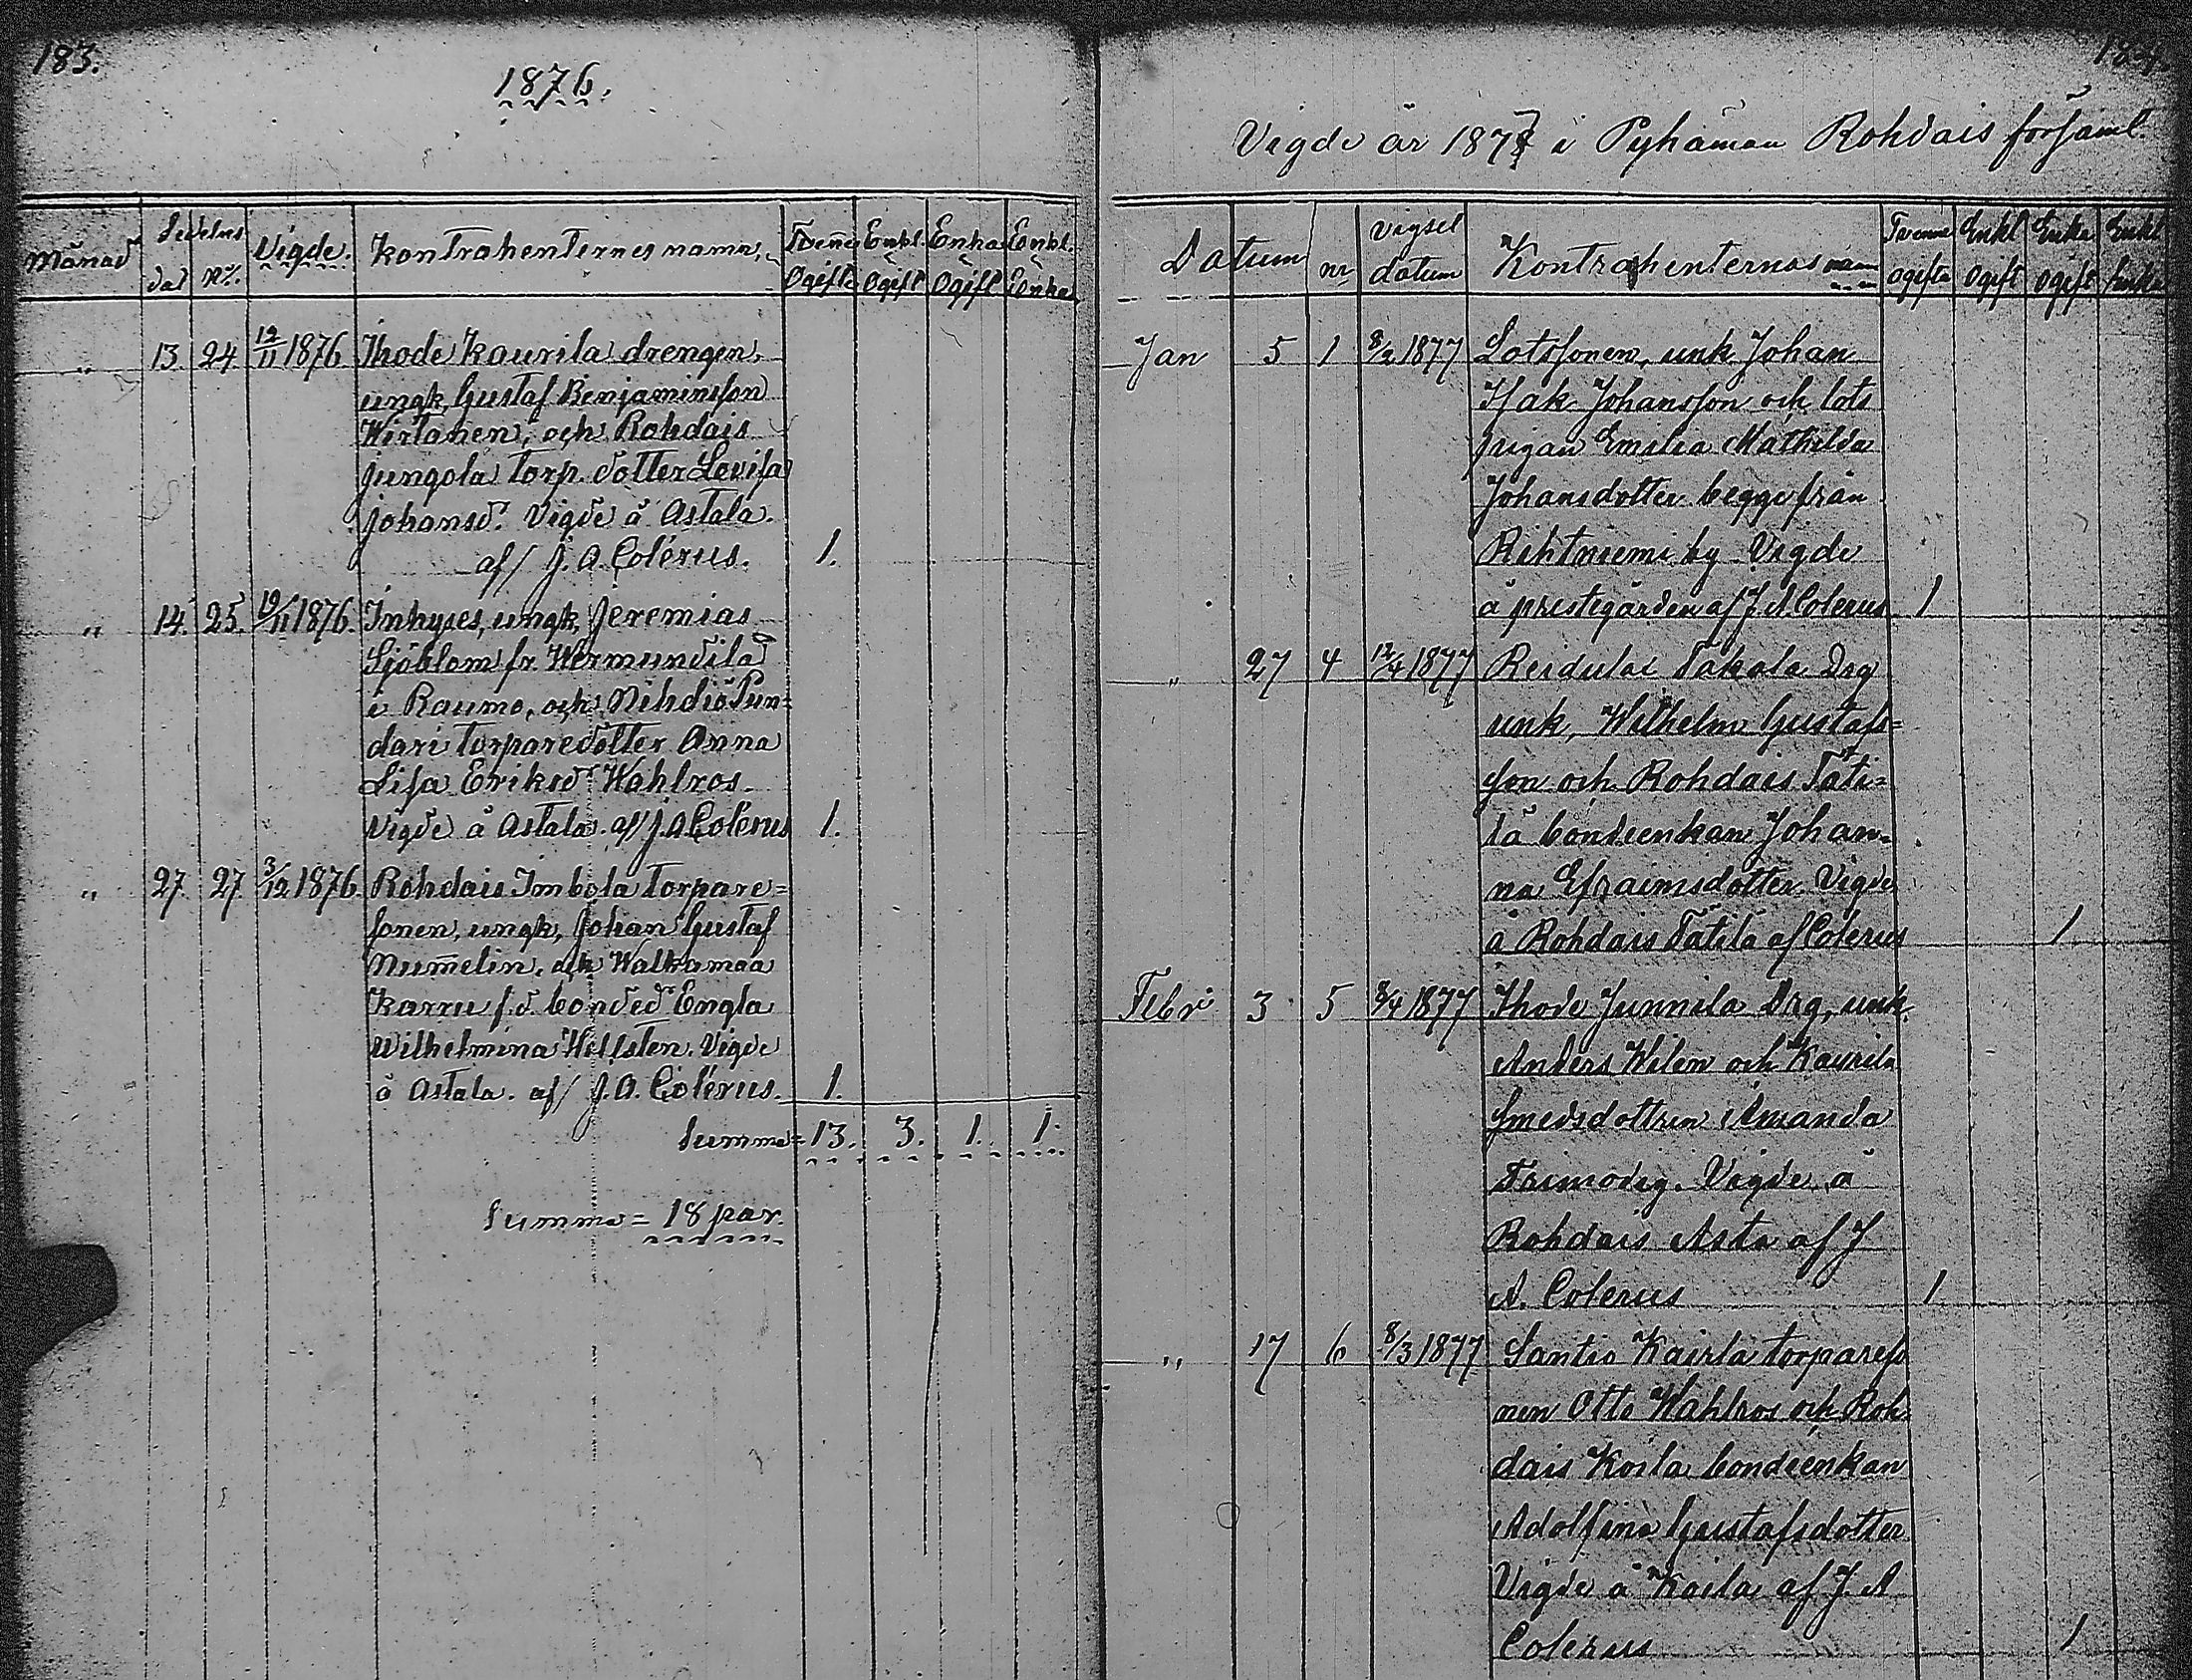 183.
1876.
Månad
Sedelns
dat
No.
Vigde.
Kontrahenternes namn,
Tvenne Ogifta
Enkl. Ogift
Enka Ogift
Enkl. Enka
" 13. 24. 12/11 1876 Ihode Kaurila drengen,
ungk, Gustaf Benjaminsson
Wirtanen, och Rohdais
Jungola torp. dotter Lovisa
Johansd. Vigde å Astala.
af/ J. A. Colérus. 1.
" 14. 25. 19/11 1876. Inhyses, ungk, Jeremias
Sjöblom fr. Wermundila
i Raumo, och Nihdiö Pun-
dari torparedotter Anna
Lisa Eriksd. Wahlros.
Vigde å Astala. af/ J. A. Colérus 1.
" 27. 27. 3/12 1876. Rohdais Imbola torpare=
sonen, ungk, Johan Gustaf
Num̄elin. och Walkamaa
Karru f.d. bonded. Engla
Wilhelmina Hellsten. Vigde
å Astala. af/ J. A. Colérus. 1.
Summa= 13. 3. 1. 1.
Summa= 18 par.
184.
Vigde år 1877 i Pyhämaa Rohdais församl.
Datum
nr
vigsel datum
Kontrahenternas namn
Tvenne ogifta
Enkl Ogift
Enka ogift
Enkl Enka
Jan 5 1 8/2 1877 Lotssonen, unk Johan
Isak Johansson och lots
pigan Emilia Mathilda
Johansdotter begge från
Rihtniemi by Vigde
å prestegården af J. A. Colerus 1
" 27 4 12/4 1877 Reidulai Takala Drg
unk, Wilhelm Gustafs=
son och Rohdais Täti=
lä bondeenkan Johan-
na Efraimsdotter Vigde
å Rohdais Tätilä af Colerus 1
Febr 3 5 8/4 1877 Ihode Junnila Drg, unk.
Anders Wilen och Kaurila
smedsdottren Amanda
Frimodig. Vigde å
Rohdais Asta af J
A. Colerus 1
" 17 6 8/3 1877 Santio Kairla torpareso
nen Otto Wahlros och Roh-
dais Koila bondeenkan
Adolfina Gustafsdotter
Vigde å Koila af J. A
Colerus 1